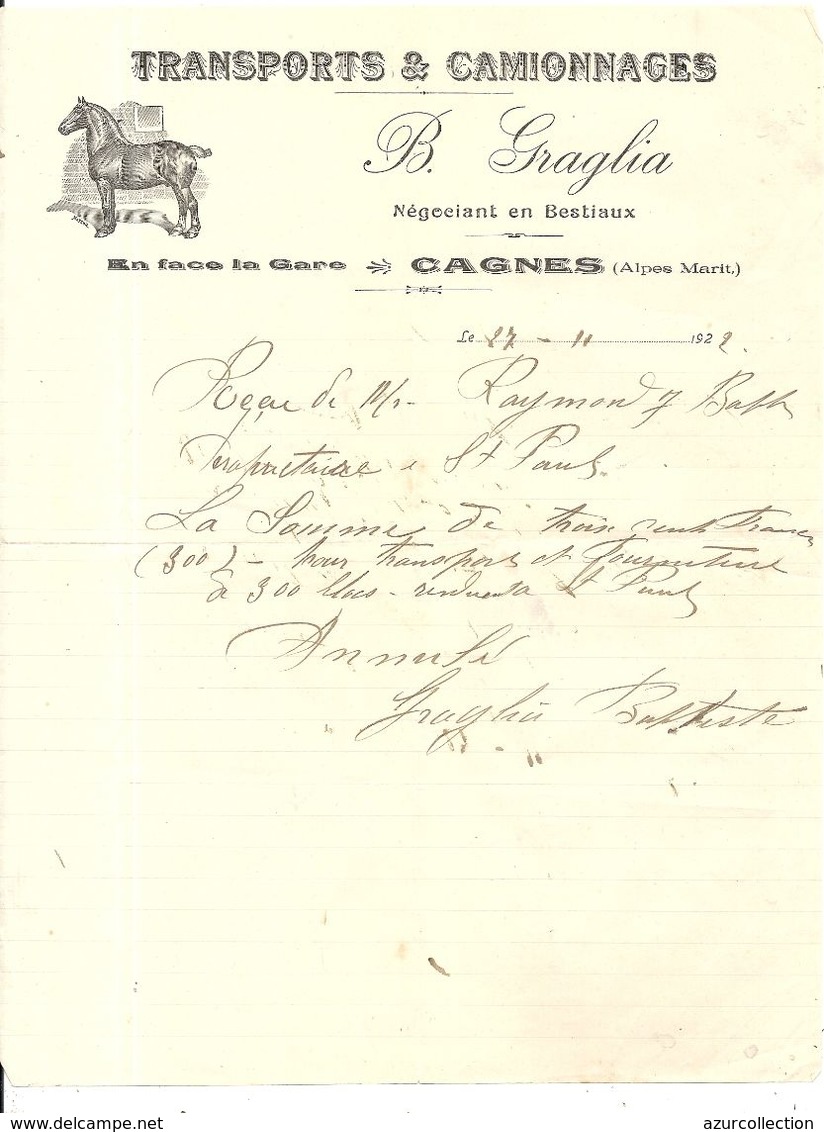 TRANSPORTS & CAMIONNAGES
B. Graglia
Négociant en Bestiaux
En face la Gare CAGNES (Alpes Marit.)
Le 27 - 11 1922.
Reçu de Mr Raymond J Bapt
propriétaire a St Paul
La Somme de trois cents francs
(300) - pour transport et fourniture
à 300 - rendu a St Paul
Annulé
Graglia Baptiste
www.delcampe.net
azurcollection